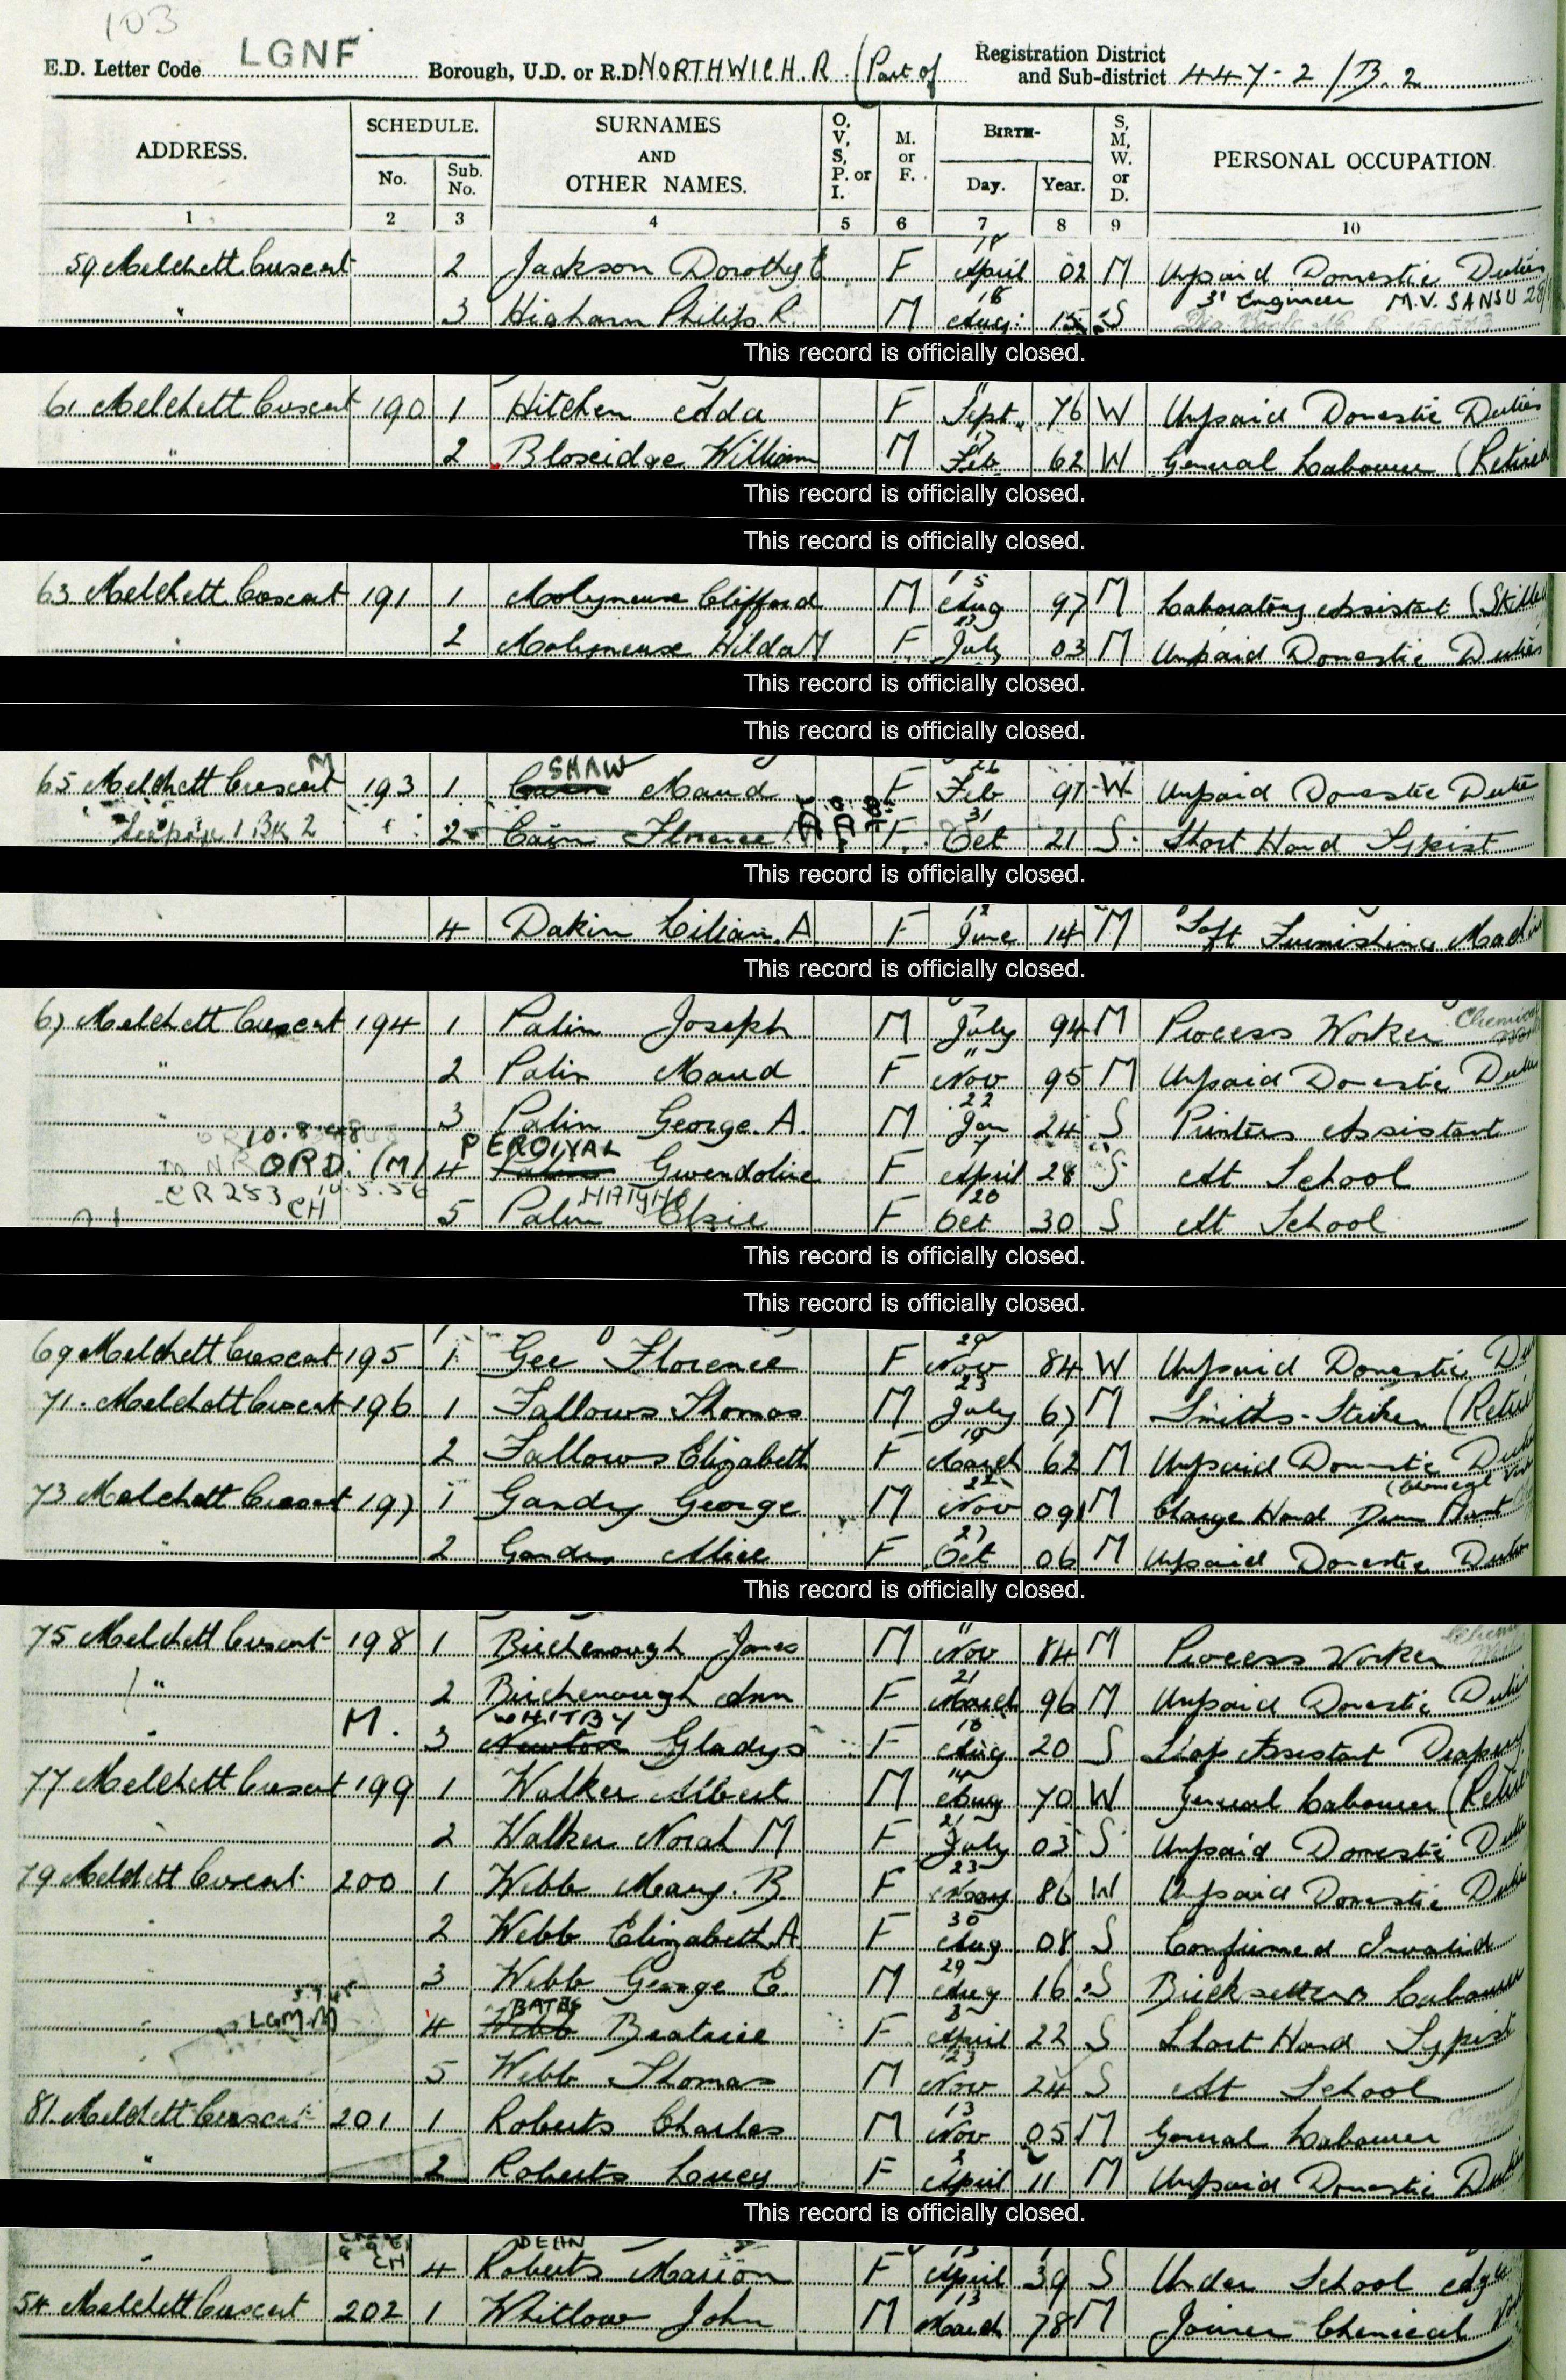 103
E.D. Letter Code LGNF Borough, U.D. or R.D. NORTHWICH. R. (Part of Registration District and Sub-district 447-2/B.2
ADDRESS. SCHEDULE. No. Sub. No. SURNAMES AND OTHER NAMES. O, V, S, P. or I. M. or F. BIRTH- Day. Year. S, M, W. or D. PERSONAL OCCUPATION.
1 2 3 4 5 6 7 8 9 10
59 Melchett Crescent 2 Jackson Dorothy E F 18 April 02 M Unpaid Domestic Duties
" 3 Higham Philip R. M 18 Aug: 15 S 3' Engineer M.V. SANSU
This record is officially closed.
61 Melchett Crescent 190 1 Hitchen Ada F Sept 76 W Unpaid Domestic Duties
" 2 Bloseidge William M 17 Feb 62 W General Labourer (Retired
This record is officially closed.
This record is officially closed.
63 Melchett Crescent 191 1 Molyneux Clifford M 5 Aug 97 M Laboratory Assistant (Skilled
" 2 Molyneux Hilda M F 23 July 03 M Unpaid Domestic Duties
This record is officially closed.
This record is officially closed.
65 Melchett Crescent M 193 1 SHAW Cain Maud F 26 Feb 97 W Unpaid Domestic Duties
2 Cain Florence F 31 Oct 21 S Short Hand Typist
This record is officially closed.
4 Dakin Lilian. A F 12 June 14 M Soft Furnishing Machin
This record is officially closed.
67 Melchett Crescent 194 1 Palin Joseph M 7 July 94 M Process Worker Chemical
" 2 Palin Maud F 11 Nov 95 M Unpaid Domestic Duties
" 3 Palin George. A. M 22 Jan 24 S Printers Assistant
10.8.48 ORD. (M) 4 PERCIVAL Palin Gwendoline F 7 April 28 S At School
CR 253 14.5.56 CH 5 Palin Elsie F 20 Oct 30 S At School
This record is officially closed.
This record is officially closed.
69 Melchett Crescent 195 1 Gee Florence F 29 Nov 84 W Unpaid Domestic Du
71. Melchett Crescent 196 1 Fallows Thomas M 23 July 67 M Smiths-Striker (Retired
2 Fallows Elizabeth F 19 March 62 M Unpaid Domestic Duties
73 Melchett Crescent 197 1 Gandy George M 22 Nov 09 M Charge Hand Plant (Chemical
" 2 Gandy Alice F 27 Oct 06 M Unpaid Domestic Duties
This record is officially closed.
75 Melchett Crescent 198 1 Birchenough James M 11 Nov 84 M Process Worker
" 2 Birchenough Ann F 21 March 96 M Unpaid Domestic Duties
" M. 3 WHITBY Newton Gladys F 18 Aug 20 S Shop Assistant Drapery
77 Melchett Crescent 199 1 Walker Albert M 14 Aug 70 W General Labourer (Retired
" 2 Walker Norah M F 21 July 03 S Unpaid Domestic Duties
79 Melchett Crescent 200 1 Webb Mary. B F 23 May 86 W Unpaid Domestic Duties
" 2 Webb Elizabeth. A F 30 Aug 08 S Confirmed Invalid
" 3 Webb George E. M 29 Aug 16 S Bricksetters Labourer
" LGMM 4 BATES Webb Beatrice F 3 April 22 S Short Hand Typist
" 5 Webb Thomas M 23 Nov 24 S At School
81 Melchett Crescent 201 1 Roberts Charles M 13 Nov 05 M General Labourer
" 2 Roberts Lucy F 2 April 11 M Unpaid Domestic Duties
This record is officially closed.
" CH 4 DEAN Roberts Marion F 13 April 39 S Under School age
54 Melchett Crescent 202 1 Whitlow John M 13 March 78 M Joiner Chemical